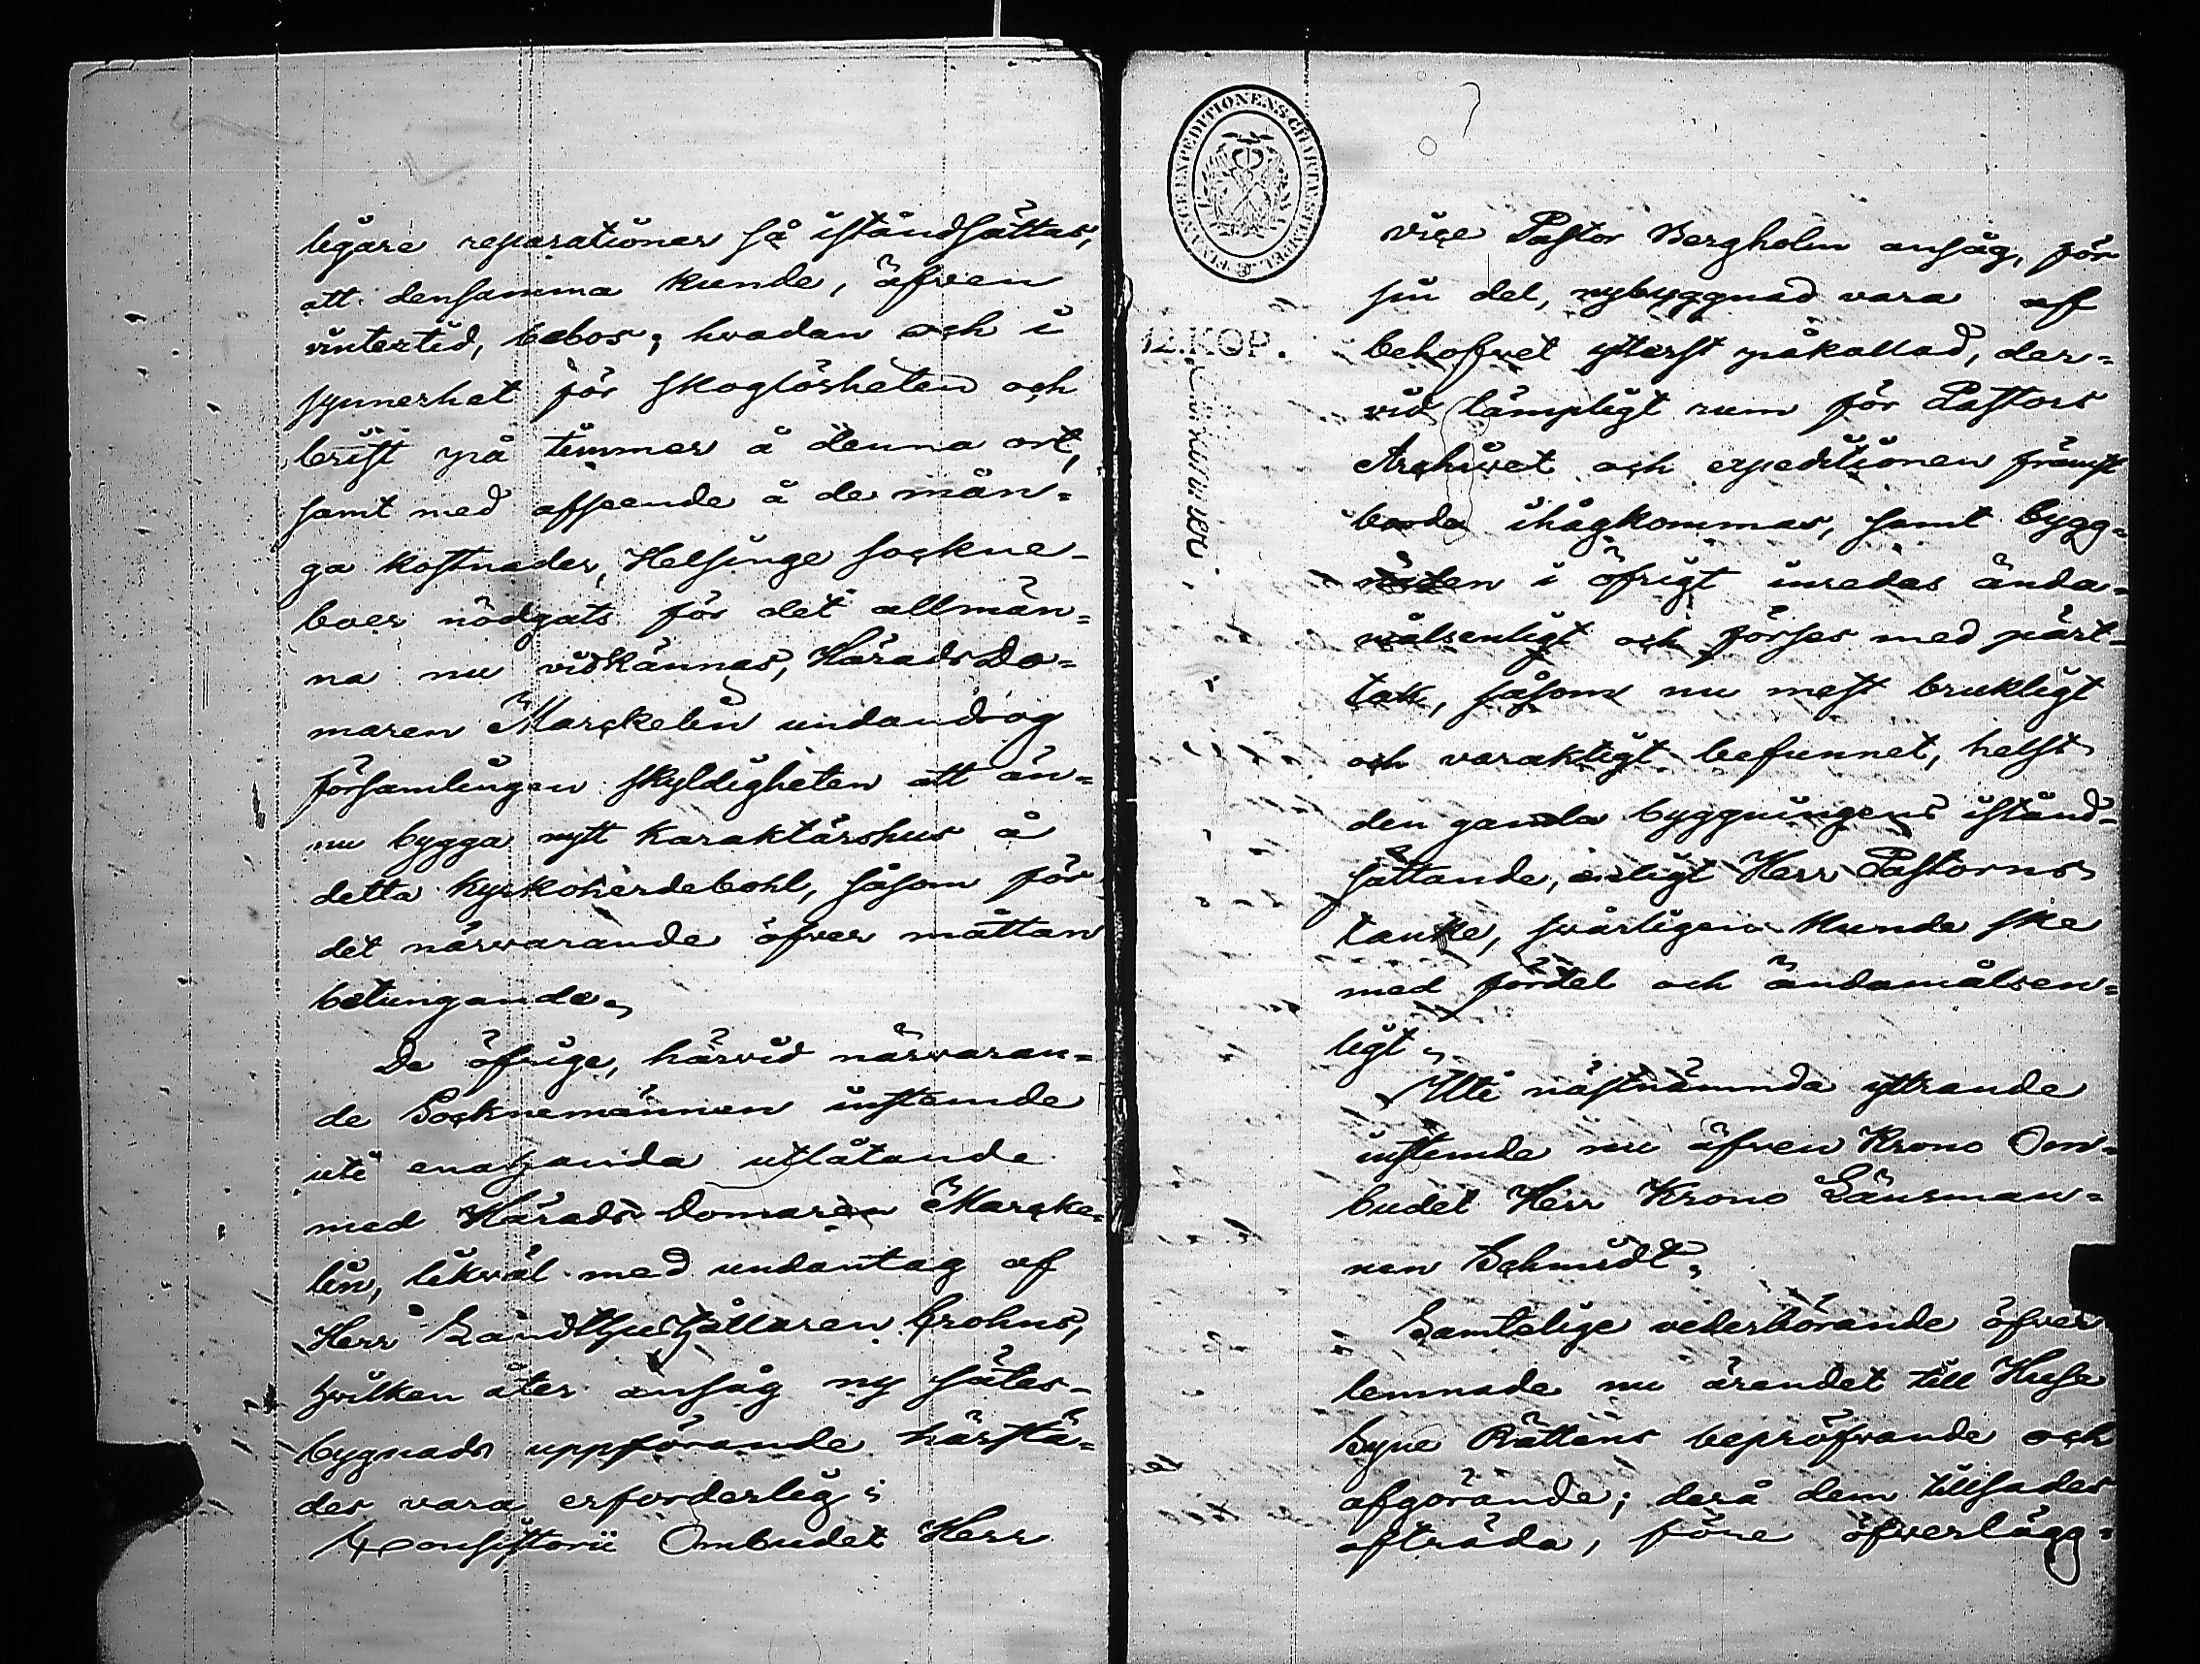 ligare reparationer så iståndsättas,
att densamma kunde, äfven
vintertid, bebos; hvadan och i
synnerhet för skoglösheten och
brist på timmer å denna ort,
samt med afseende å de mån-
ga kostnader, Helsinge sockne-
boer nödgats för det allmän-
na nu vidkännas, HäradsDo-
maren Marckelin undandrog
församlingen skyldigheten att än-
nu bygga nytt Karaktärshus å
detta Kyrkoherdebohl, såsom för
det närvarande öfver måttan
betungande.
De öfrige, härvid närvaran-
de Socknemännen instämde
uti enahanda utlåtande
med Härads Domaren Marcke-
lin, likväl med undantag af
Herr Landthushållaren Brohns,
hvilken åter ansåg ny sätes-
bygnads uppförande härstä-
des vara erforderlig;
Consistorii Ombudet Herr
FINANCE EXPEDITIONENS CHARTÆ STEMPEL
12. KOP.
vice Pastor Bergholm ansåg, för
sin del, nybyggnad vara af
behofvet ytterst påkallad, der-
vid lämpligt rum för Pastors
Archivet och expeditionen främst
borde ihågkommas, samt bygg-
naden i öfrigt inredas ända-
målsenligt och förses med pärt-
tak, såsom nu mest brukligt
och varaktigt befunnet, helst
den gamla byggningens istånd-
sättande, enligt Herr Pastorns
tanke, svårligen kunde ske
med fördel och ändamålsen-
ligt.
Uti nästnämnda yttrande
instemde nu äfven Krono Om-
budet Herr Krono Länsman-
nen Schmidt.
Samtelige vederbörande öfver
lemnade nu ärendet till Huse
Syne Rättens bepröfvande och
afgörande; derå dem tillsades
afträda, före öfverlägg-